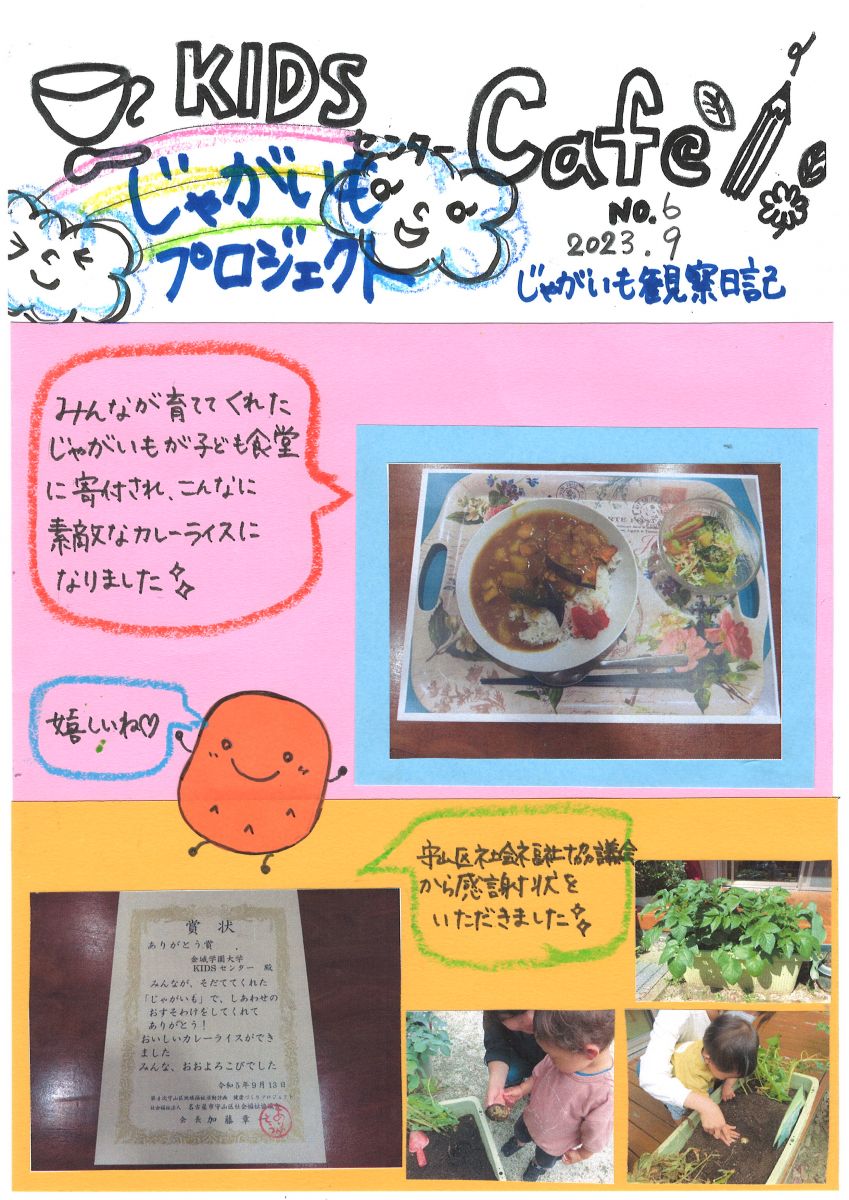 KIDS
センター
Cafe
じゃがいも
プロジェクト
NO.6
2023.9
じゃがいも観察日記
みんなが育ててくれた
じゃがいもが子ども食堂
に寄付され、こんなに
素敵なカレーライスに
なりました
嬉しいね♡
守山区社会福祉協議会
から感謝状を
いただきました
賞状
ありがとう賞
金城学園大学
KIDSセンター 殿
みんなが、そだててくれた
「じゃがいも」で、しあわせの
おすそわけをしてくれて
ありがとう!
おいしいカレーライスができ
ました
みんな、おおよろこびでした
令和5年9月13日
社会福祉法人 名古屋市守山区社会福祉協議会
会長 加藤 章